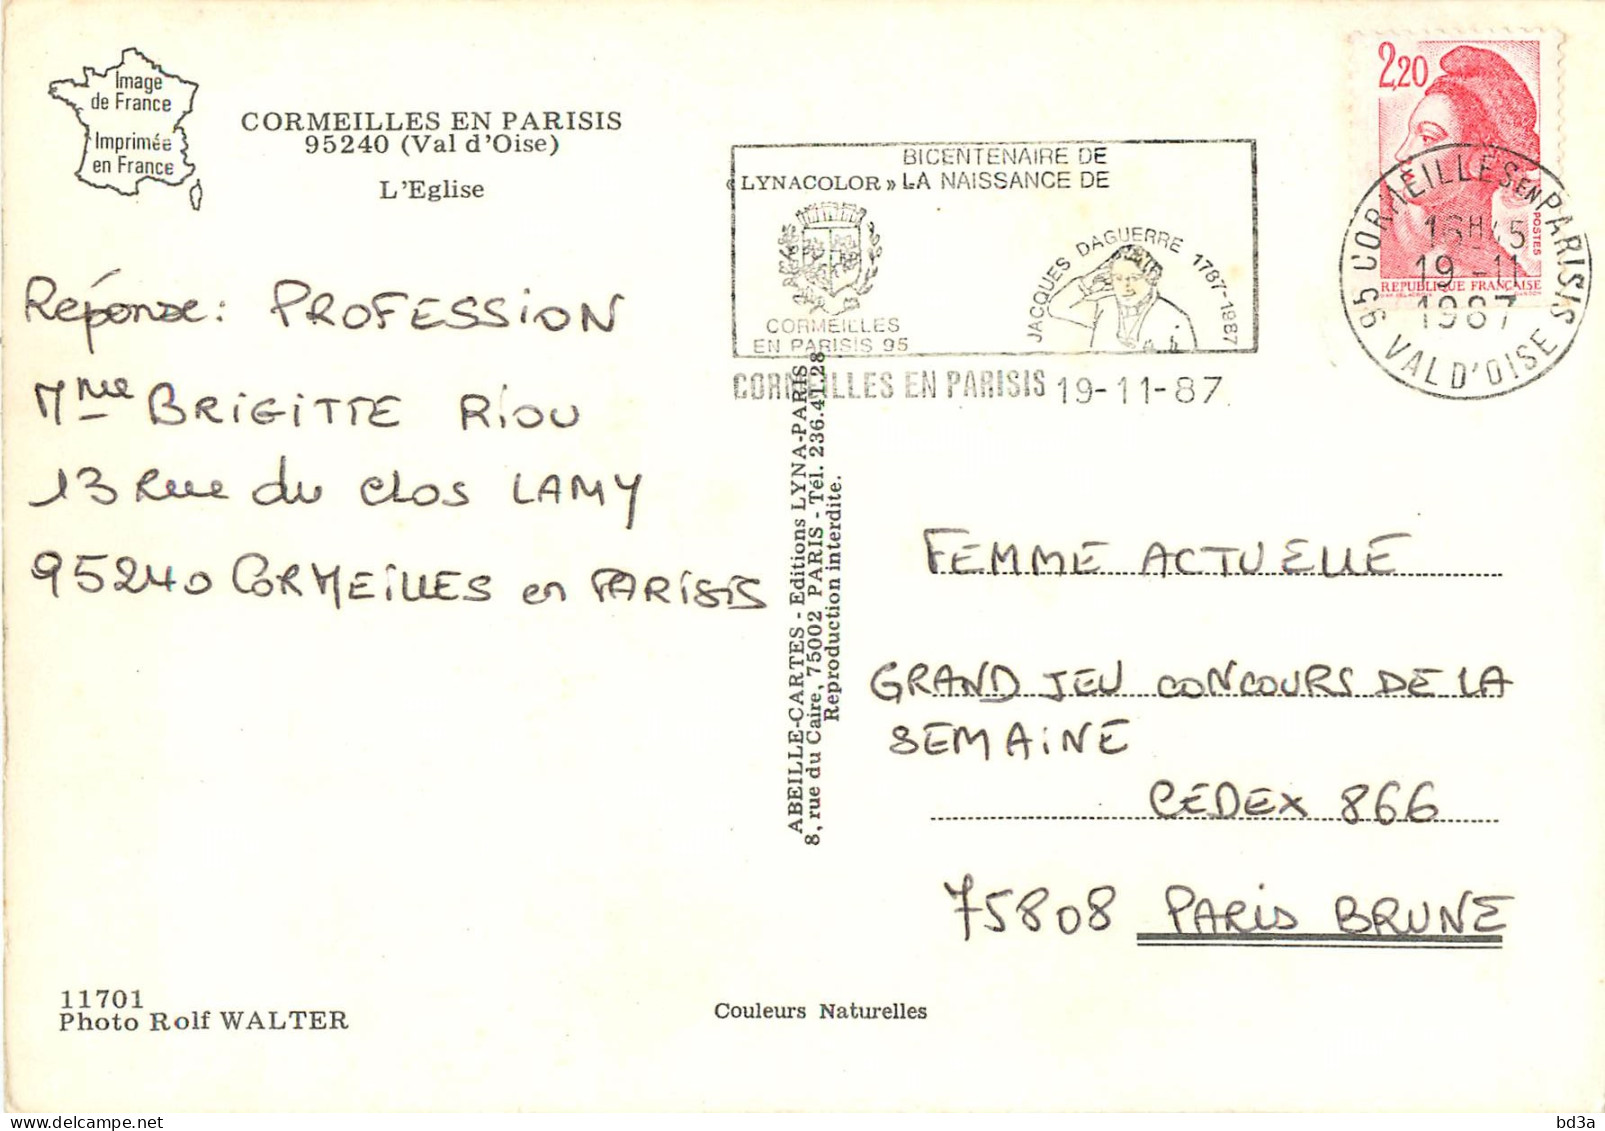 Image
de France
Imprimée
en France
CORMEILLES EN PARISIS
95240 (Val d'Oise)
L'Eglise
BICENTENAIRE DE
« LYNACOLOR » LA NAISSANCE DE
JACQUES DAGUERRE 1787-1987
CORMEILLES
EN PARISIS 95
CORMEILLES EN PARISIS 19-11-87
2,20
POSTES
REPUBLIQUE FRANÇAISE
95 CORMEILLES EN PARISIS
16H45
19-11
1987
VAL D'OISE
Réponse : PROFESSION
Mme BRIGITTE RIOU
13 Rue du Clos LAMY
95240 CORMEILLES en PARISIS
ABEILLE-CARTES - Editions LYNA-PARIS
8, rue du Caire, 75002 PARIS - Tél. 236.41.28
Reproduction interdite.
FEMME ACTUELLE
GRAND JEU CONCOURS DE LA
SEMAINE
CEDEX 866
75808 PARIS BRUNE
11701
Photo Rolf WALTER
Couleurs Naturelles
bd3a